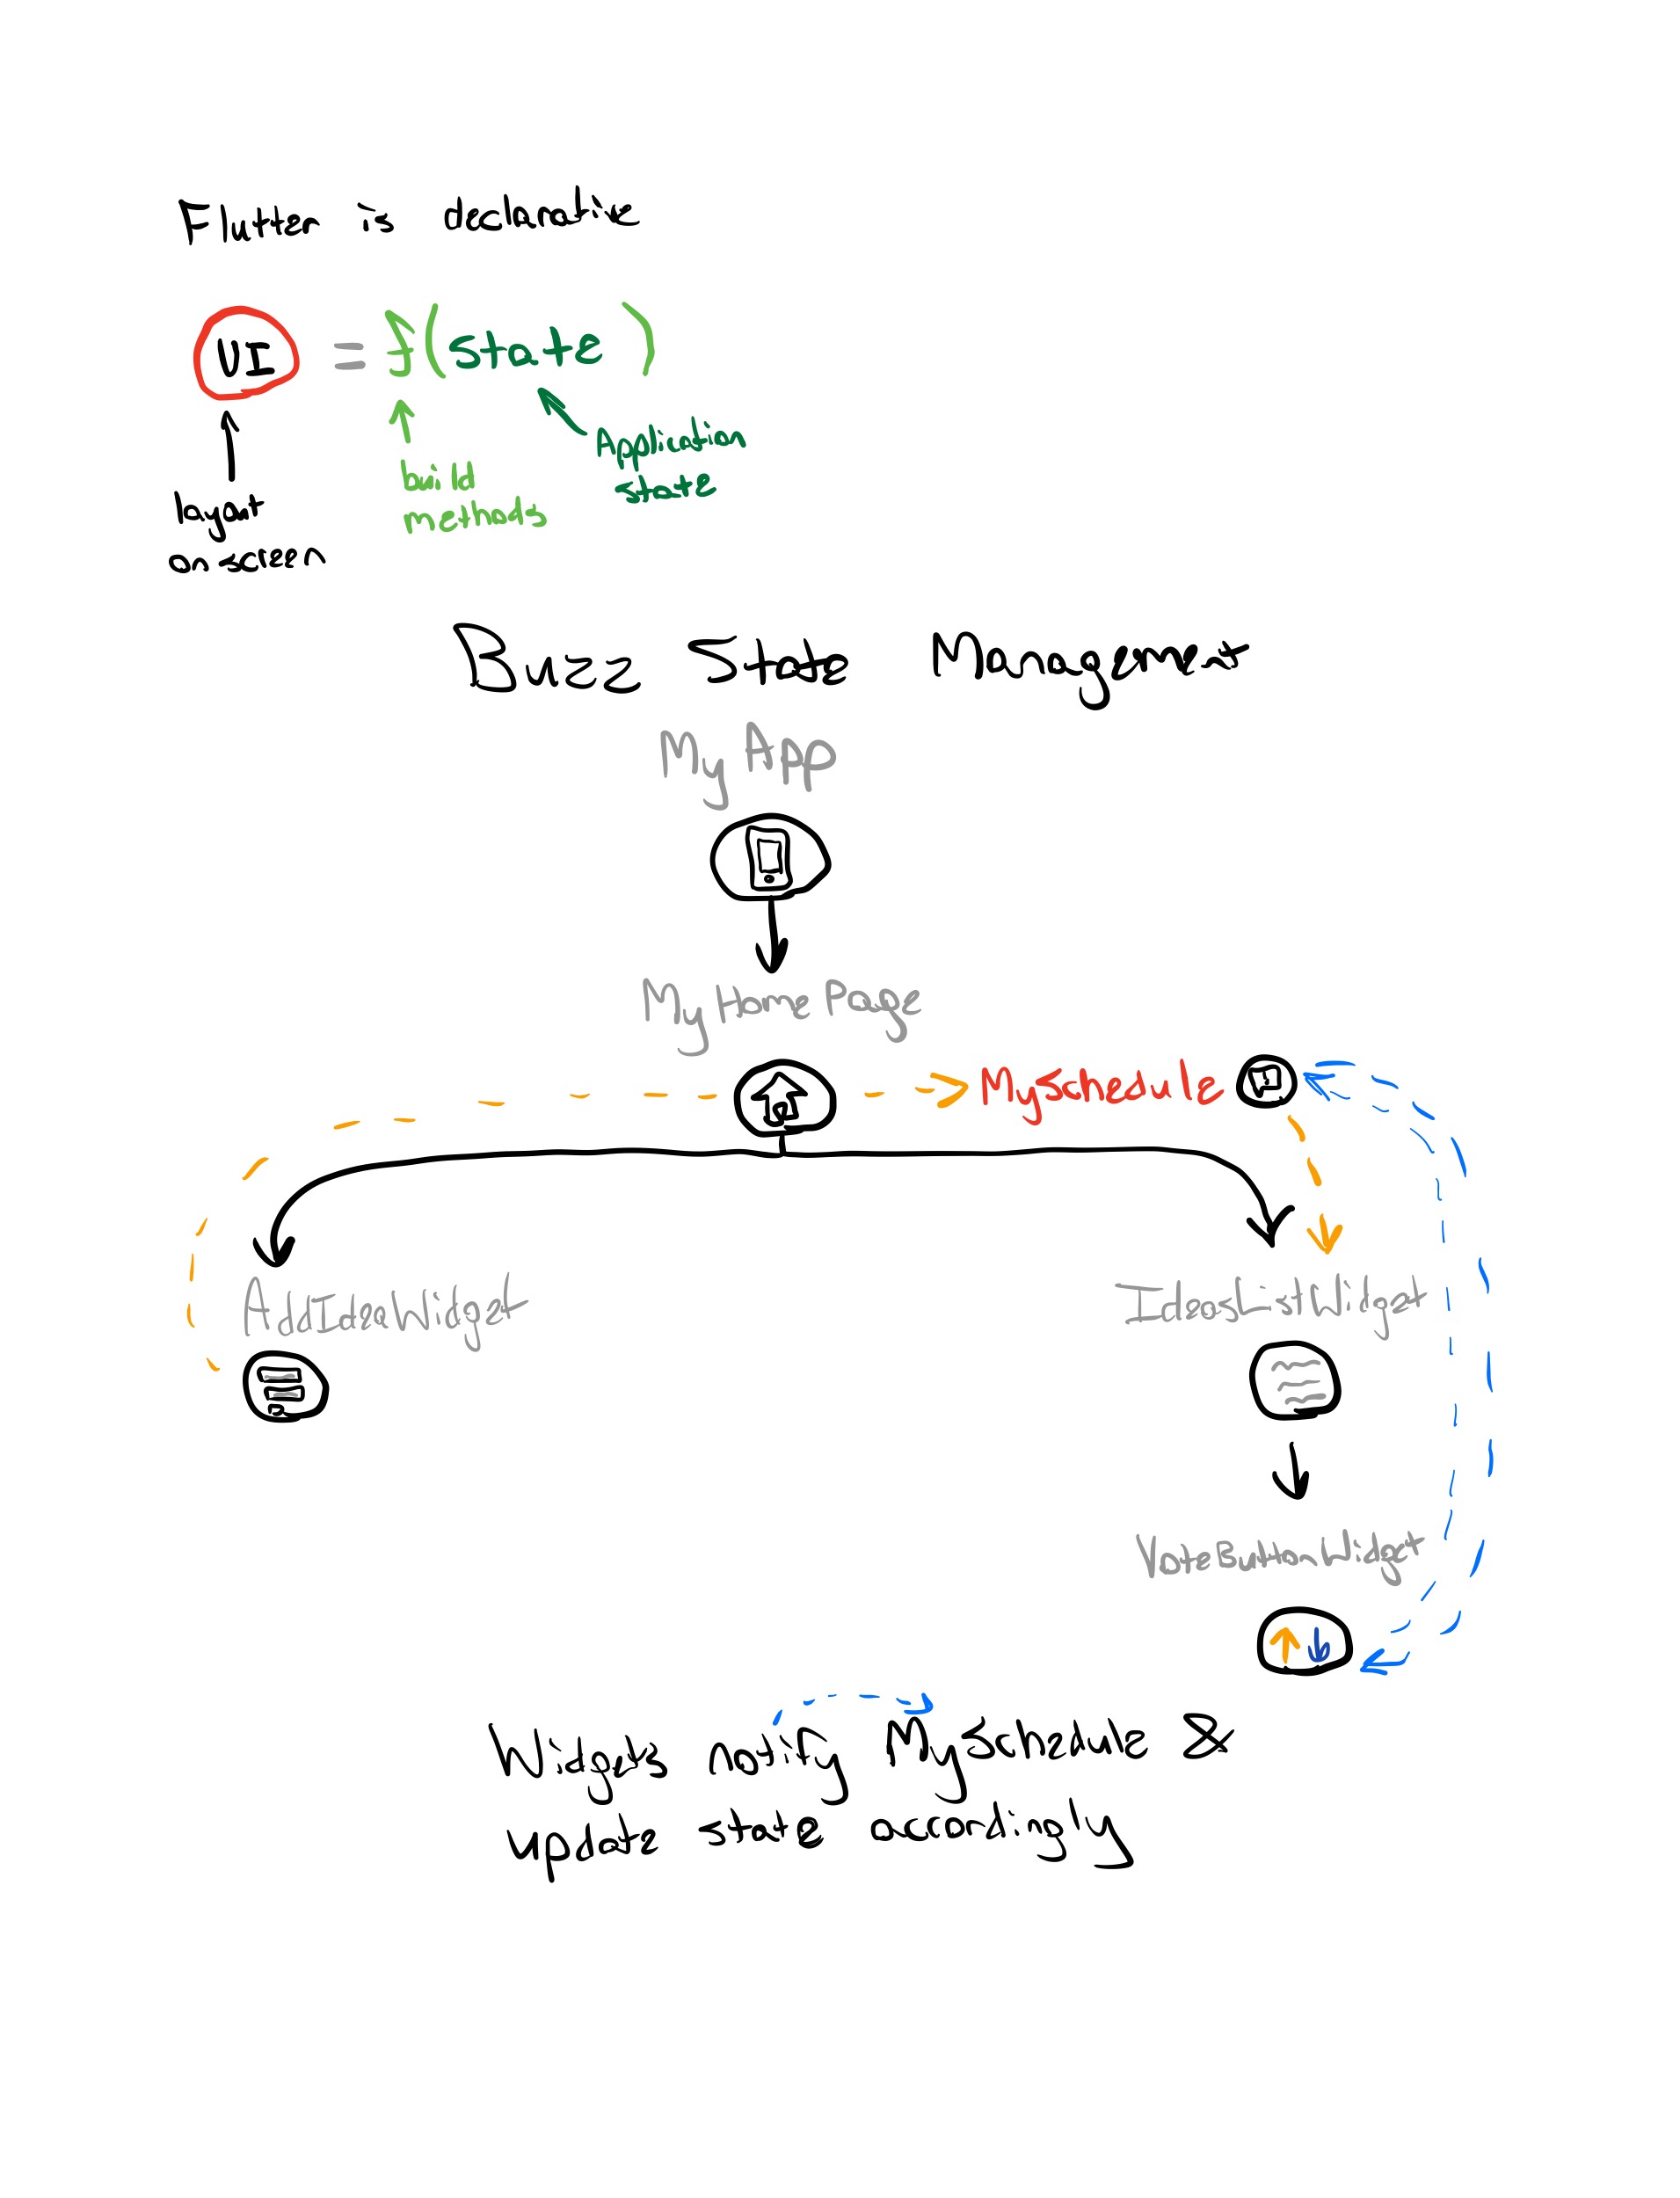 Flutter is declarative
UI = f(state)
Application
state
build
methods
layout
on screen
Buzz State Management
MyApp
MyHomePage
MySchedule
AddIdeaWidget
IdeasListWidget
VoteButtonWidget
Widgets notify MySchedule &
update state accordingly